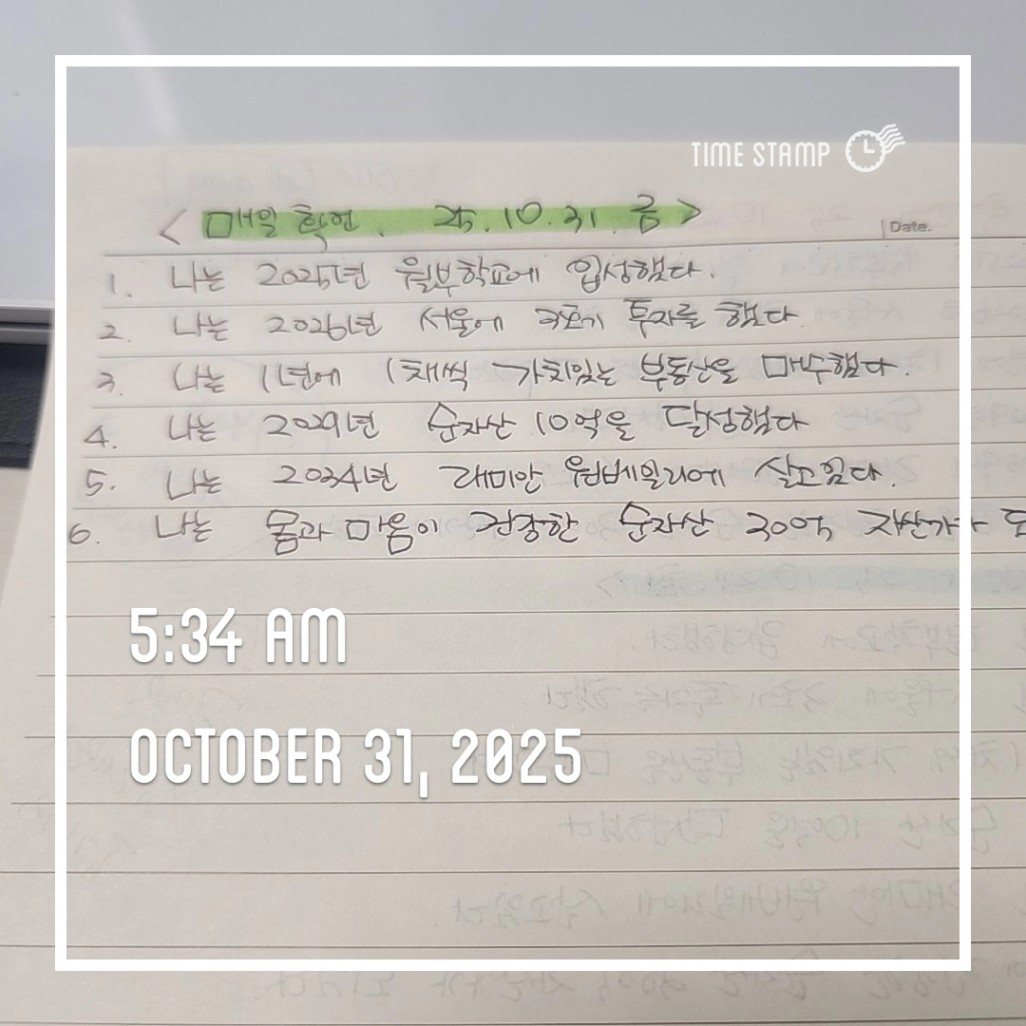 TIME STAMP
< 매일 확언. 25.10.31. 금 >
Date.
1. 나는 2025년 월부학교에 입성했다.
2. 나는 2026년 서울에 2호기 투자를 했다.
3. 나는 1년에 1채씩 가치있는 부동산을 매수했다.
4. 나는 2029년 순자산 10억을 달성했다
5. 나는 2034년 래미안 원베일리에 살고있다.
6. 나는 몸과 마음이 건강한 순자산 30억 자산가가
5:34 AM
OCTOBER 31, 2025